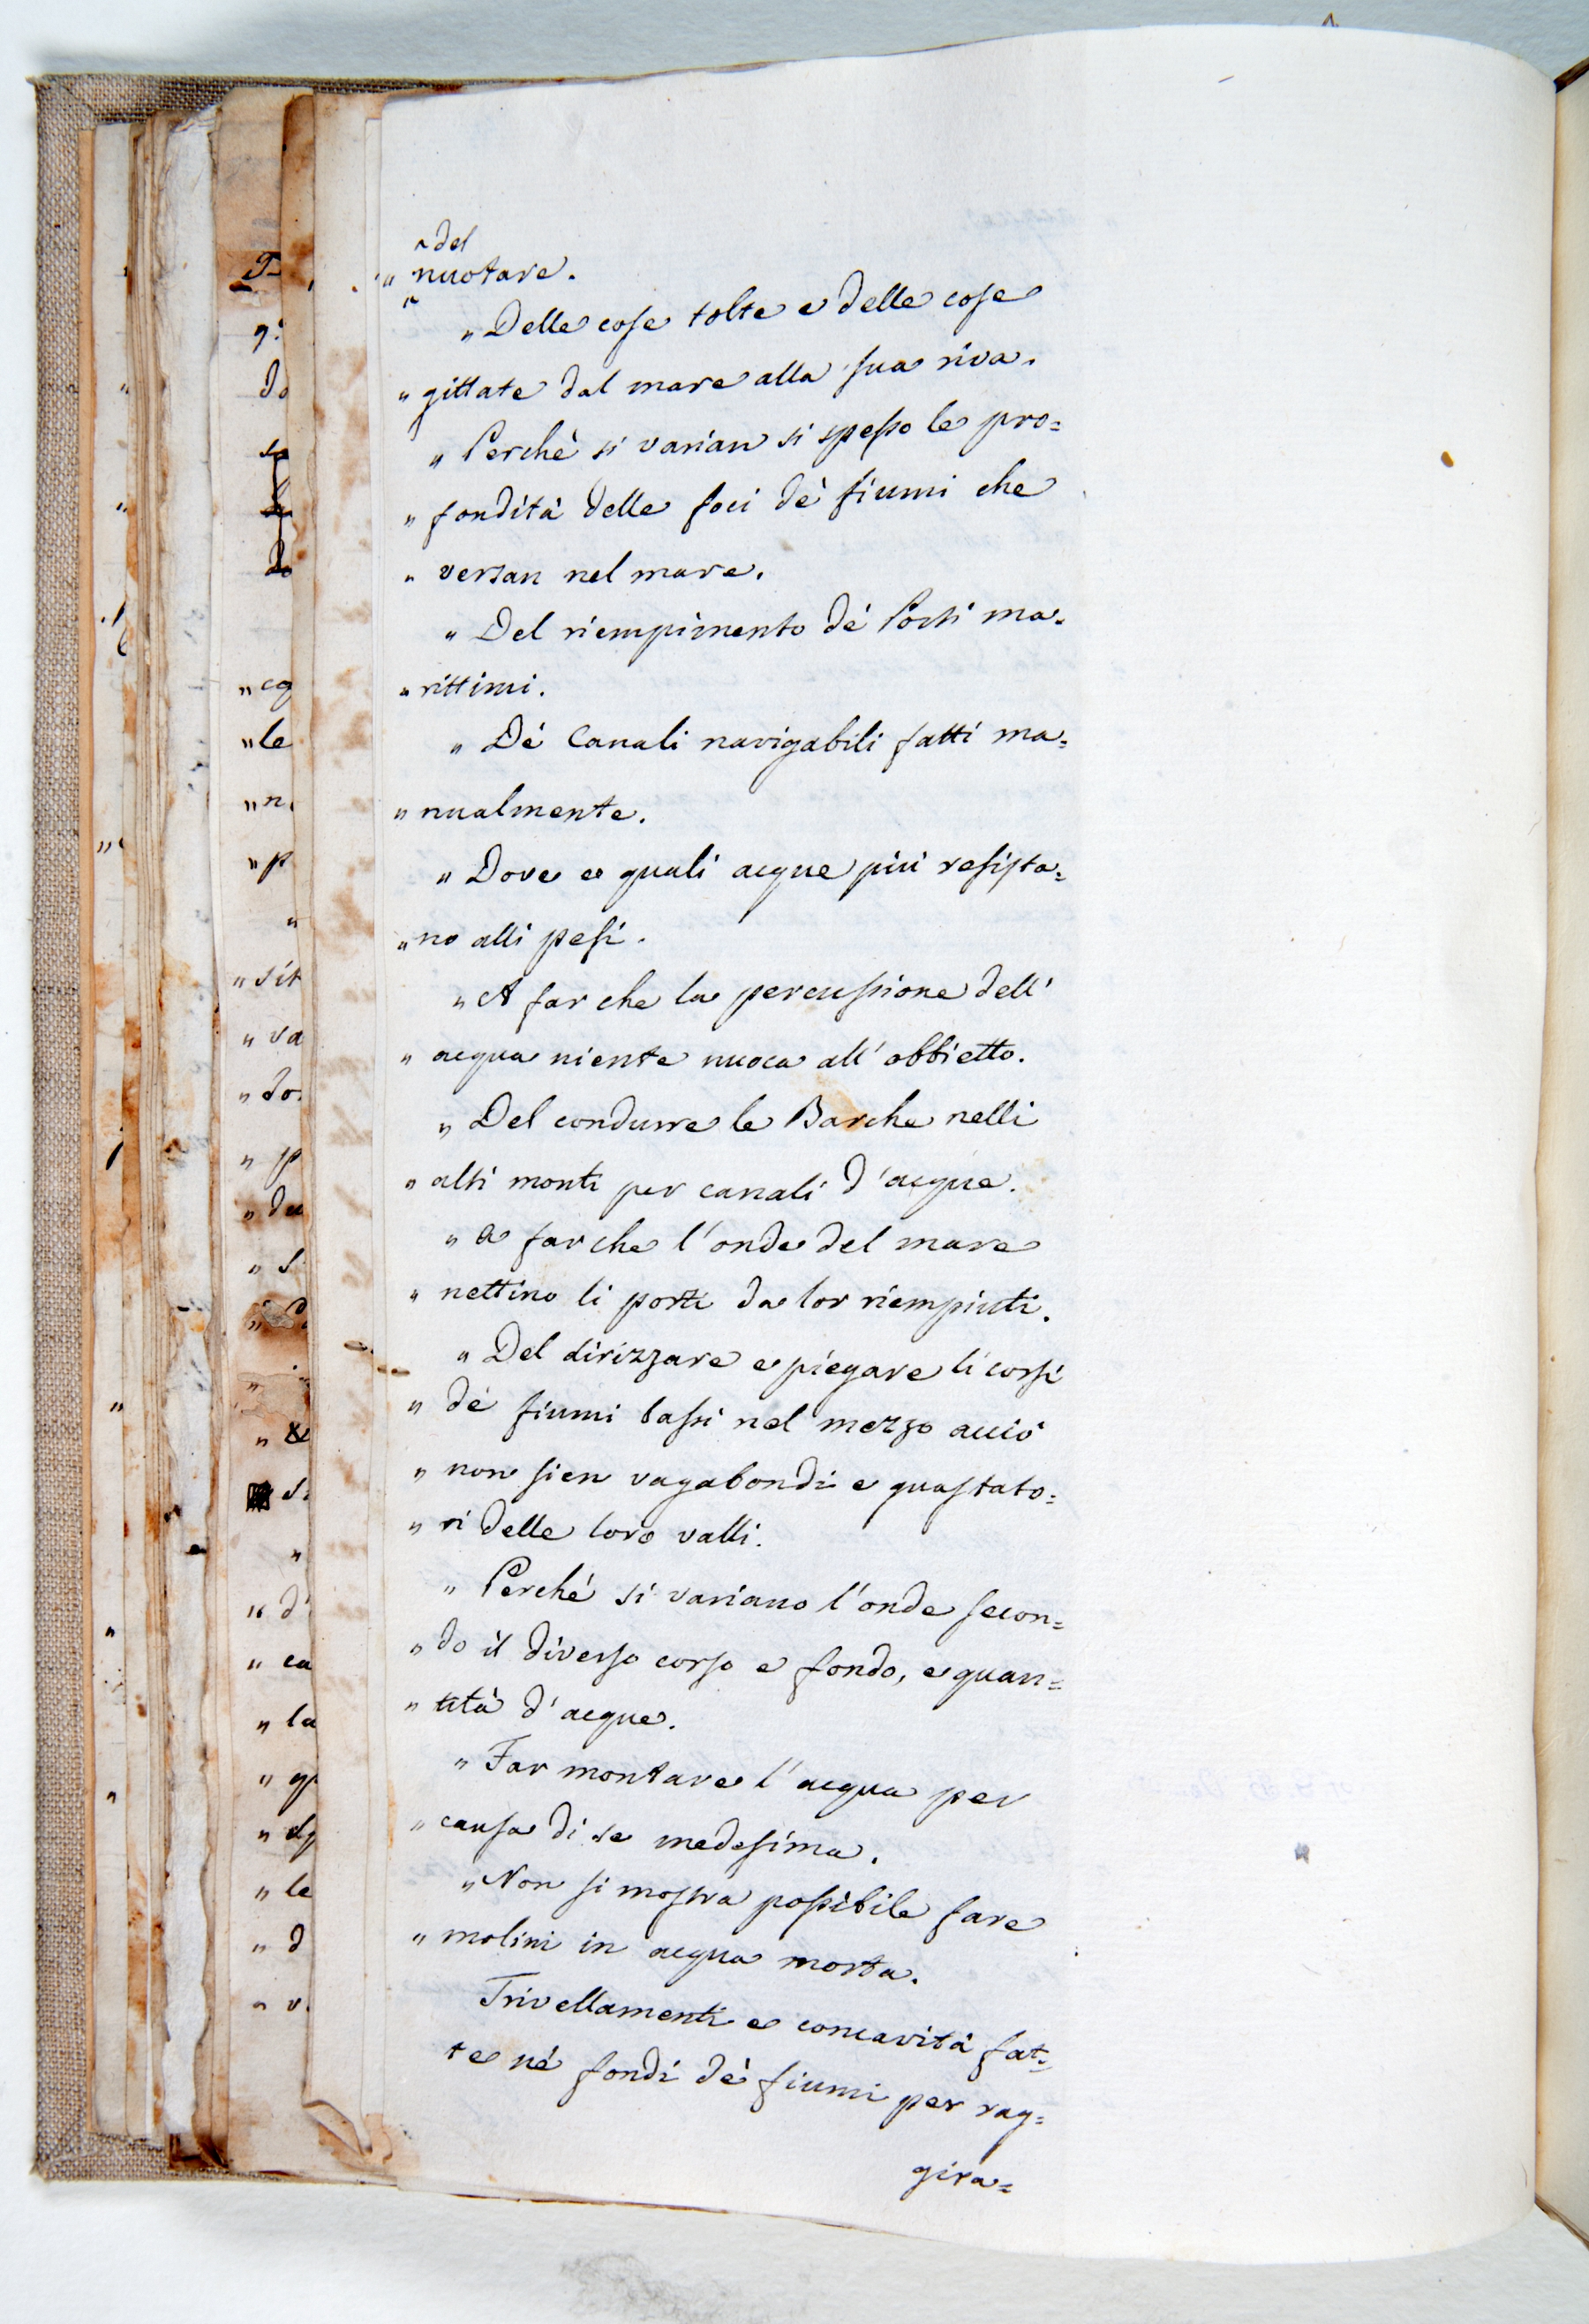 ^ del
„ nuotare.
„ Delle cose tolte e delle cose
„ gittate dal mare alla sua riva.
„ Perchè si varian si spesso le pro=
„ fondità delle foci dè fiumi che
„ versan nel mare.
„ Del riempimento dè Porti ma=
„ rittimi.
„ Dè Canali navigabili fatti ma=
„ nualmente.
„ Dove e quali acque più resista=
„ no alli pesi.
„ A far che la percussione dell'
„ acqua niente nuoca all' obbietto.
„ Del condurre le Barche nelli
„ alti monti per canali d'acque.
„ a far che l'onde del mare
„ nettino li porti da lor riempiuti.
„ Del dirizzare e piegare li corsi
„ dè fiumi bassi nel mezzo acciò
„ non sien vagabondi e guastato=
„ ri delle loro valli.
„ Perchè si variano l'onde secon=
„ do il diverso corso e fondo, e quan=
„ tità d'acque.
„ Far montare l'acqua per
„ causa di se medesima.
„ Non si mostra possibile fare
„ molini in acqua morta.
Trivellamenti e concavità fat=
te nè fondi dè fiumi per rag=
gira=